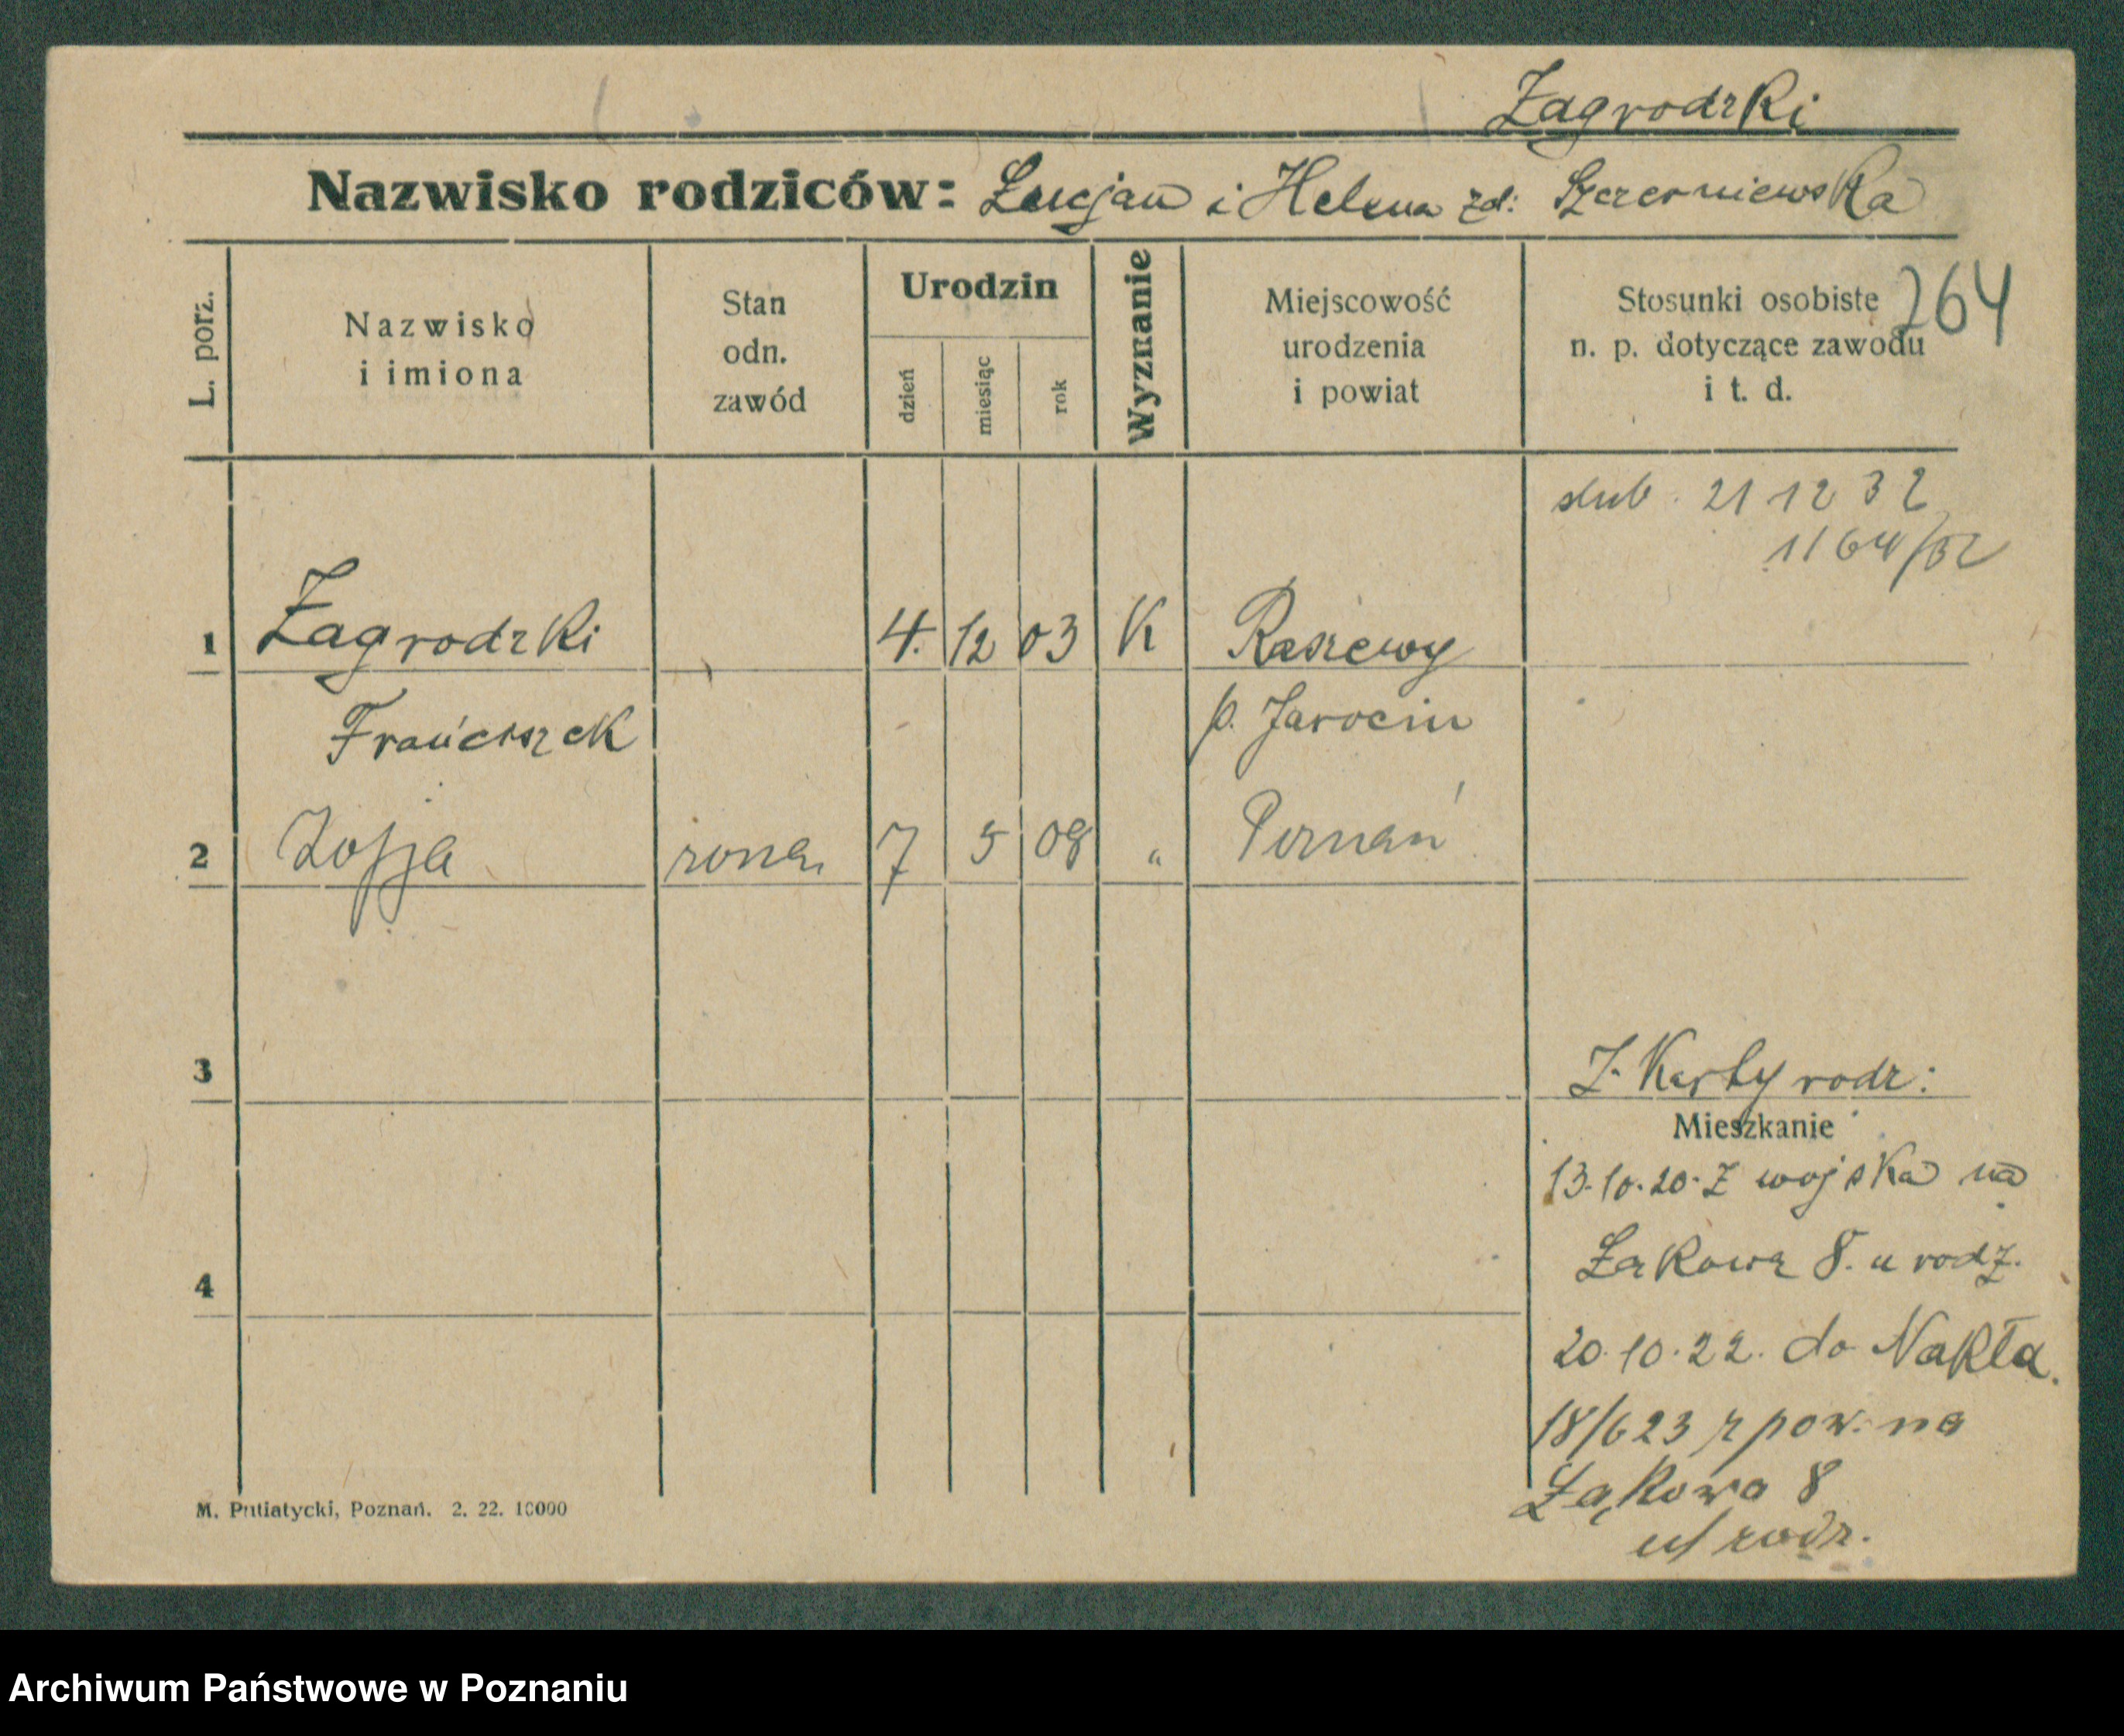 Zagrodzki
Nazwisko rodziców: Lucjan i Helena zd: Szcześniewska
L. porz.
Nazwisko
i imiona
Stan
odn.
zawód
Urodzin
dzień
miesiąc
rok
Wyznanie
Miejscowość
urodzenia
i powiat
Stosunki osobiste
n. p. dotyczące zawodu
i t. d.
264
slub. 21 12 32
1164/32
1 Zagrodzki 4. 12 03 K Raszewy
Franciszek p. Jarocin
2 Zofja zona 7 5 08 " Poznań
3
Z Karty rodz:
Mieszkanie
13.10.20. Z wojska na
Łąkowa 8. u rodz.
4
20.10.22. do Nakła.
18/6 23 z pow. na
Łąkowa 8
u/ rodz.
M. Putiatycki, Poznań. 2. 22. 10000
Archiwum Państwowe w Poznaniu